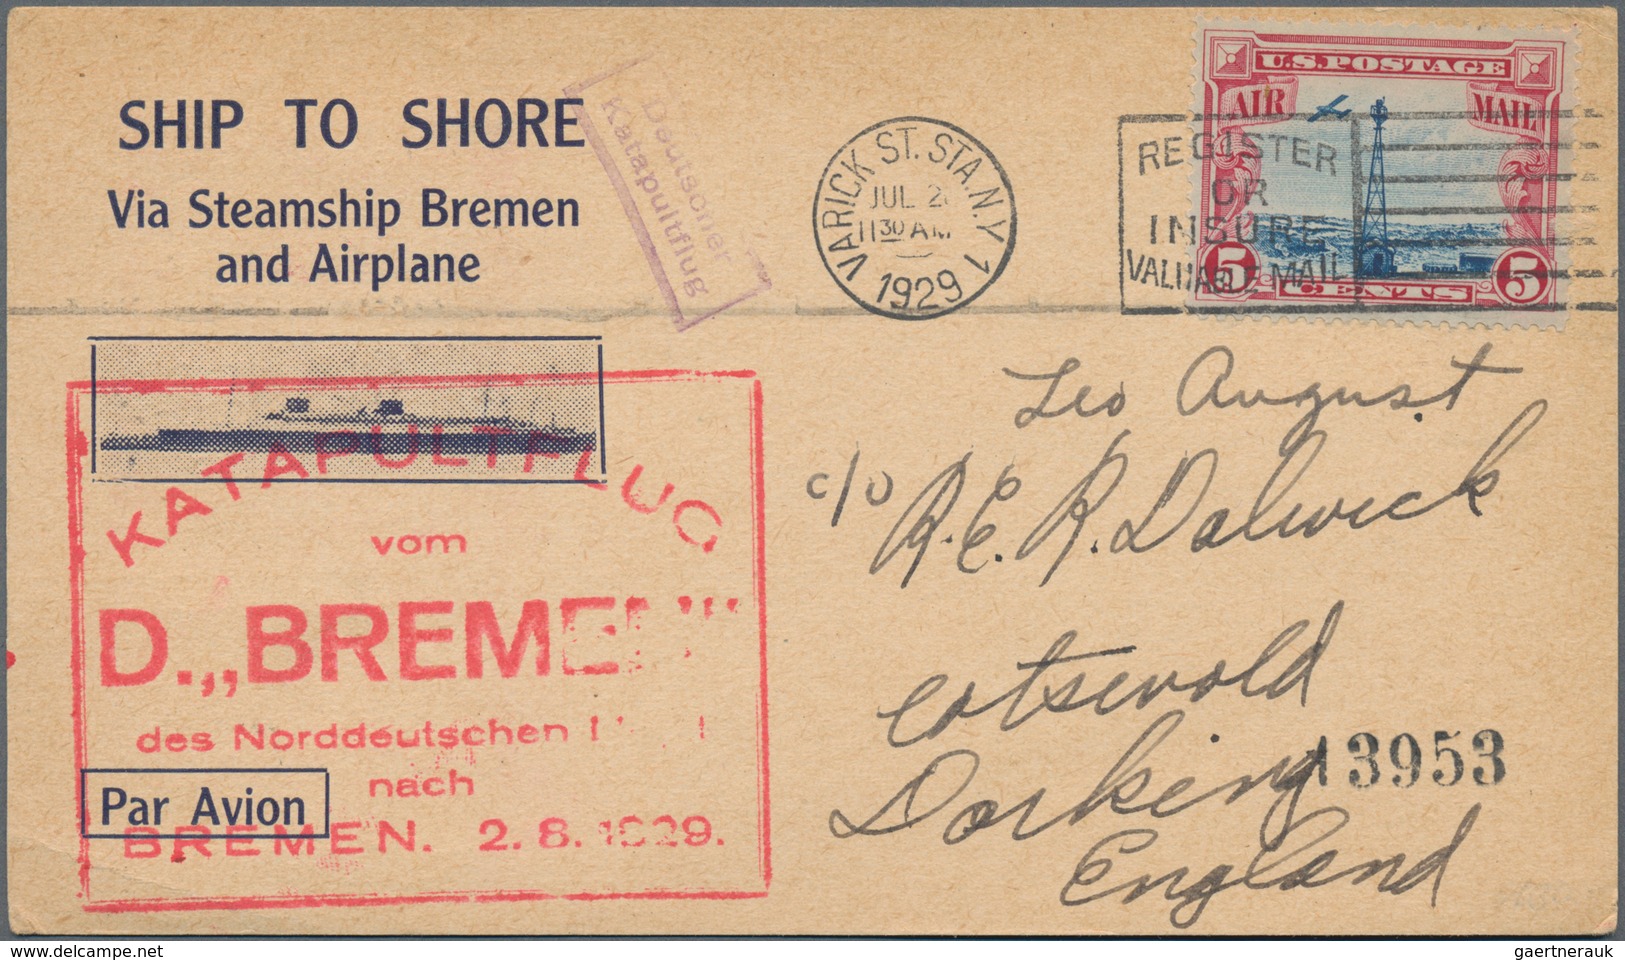 SHIP TO SHORE
Via Steamship Bremen
and Airplane
Deutscher
Katapultflug
VARICK ST. STA. N.Y. 1
JUL 2
11 30 AM
1929
REGISTER
OR
INSURE
VALUABLE MAIL
U.S. POSTAGE
AIR MAIL
5 CENTS 5
Leo August
c/o R.E.R. Dalwick
Cotswold
Dorking
England
13953
KATAPULTFLUG
vom
D. „BREMEN"
des Norddeutschen
nach
BREMEN. 2.8.1929.
Par Avion
gaertnerauk